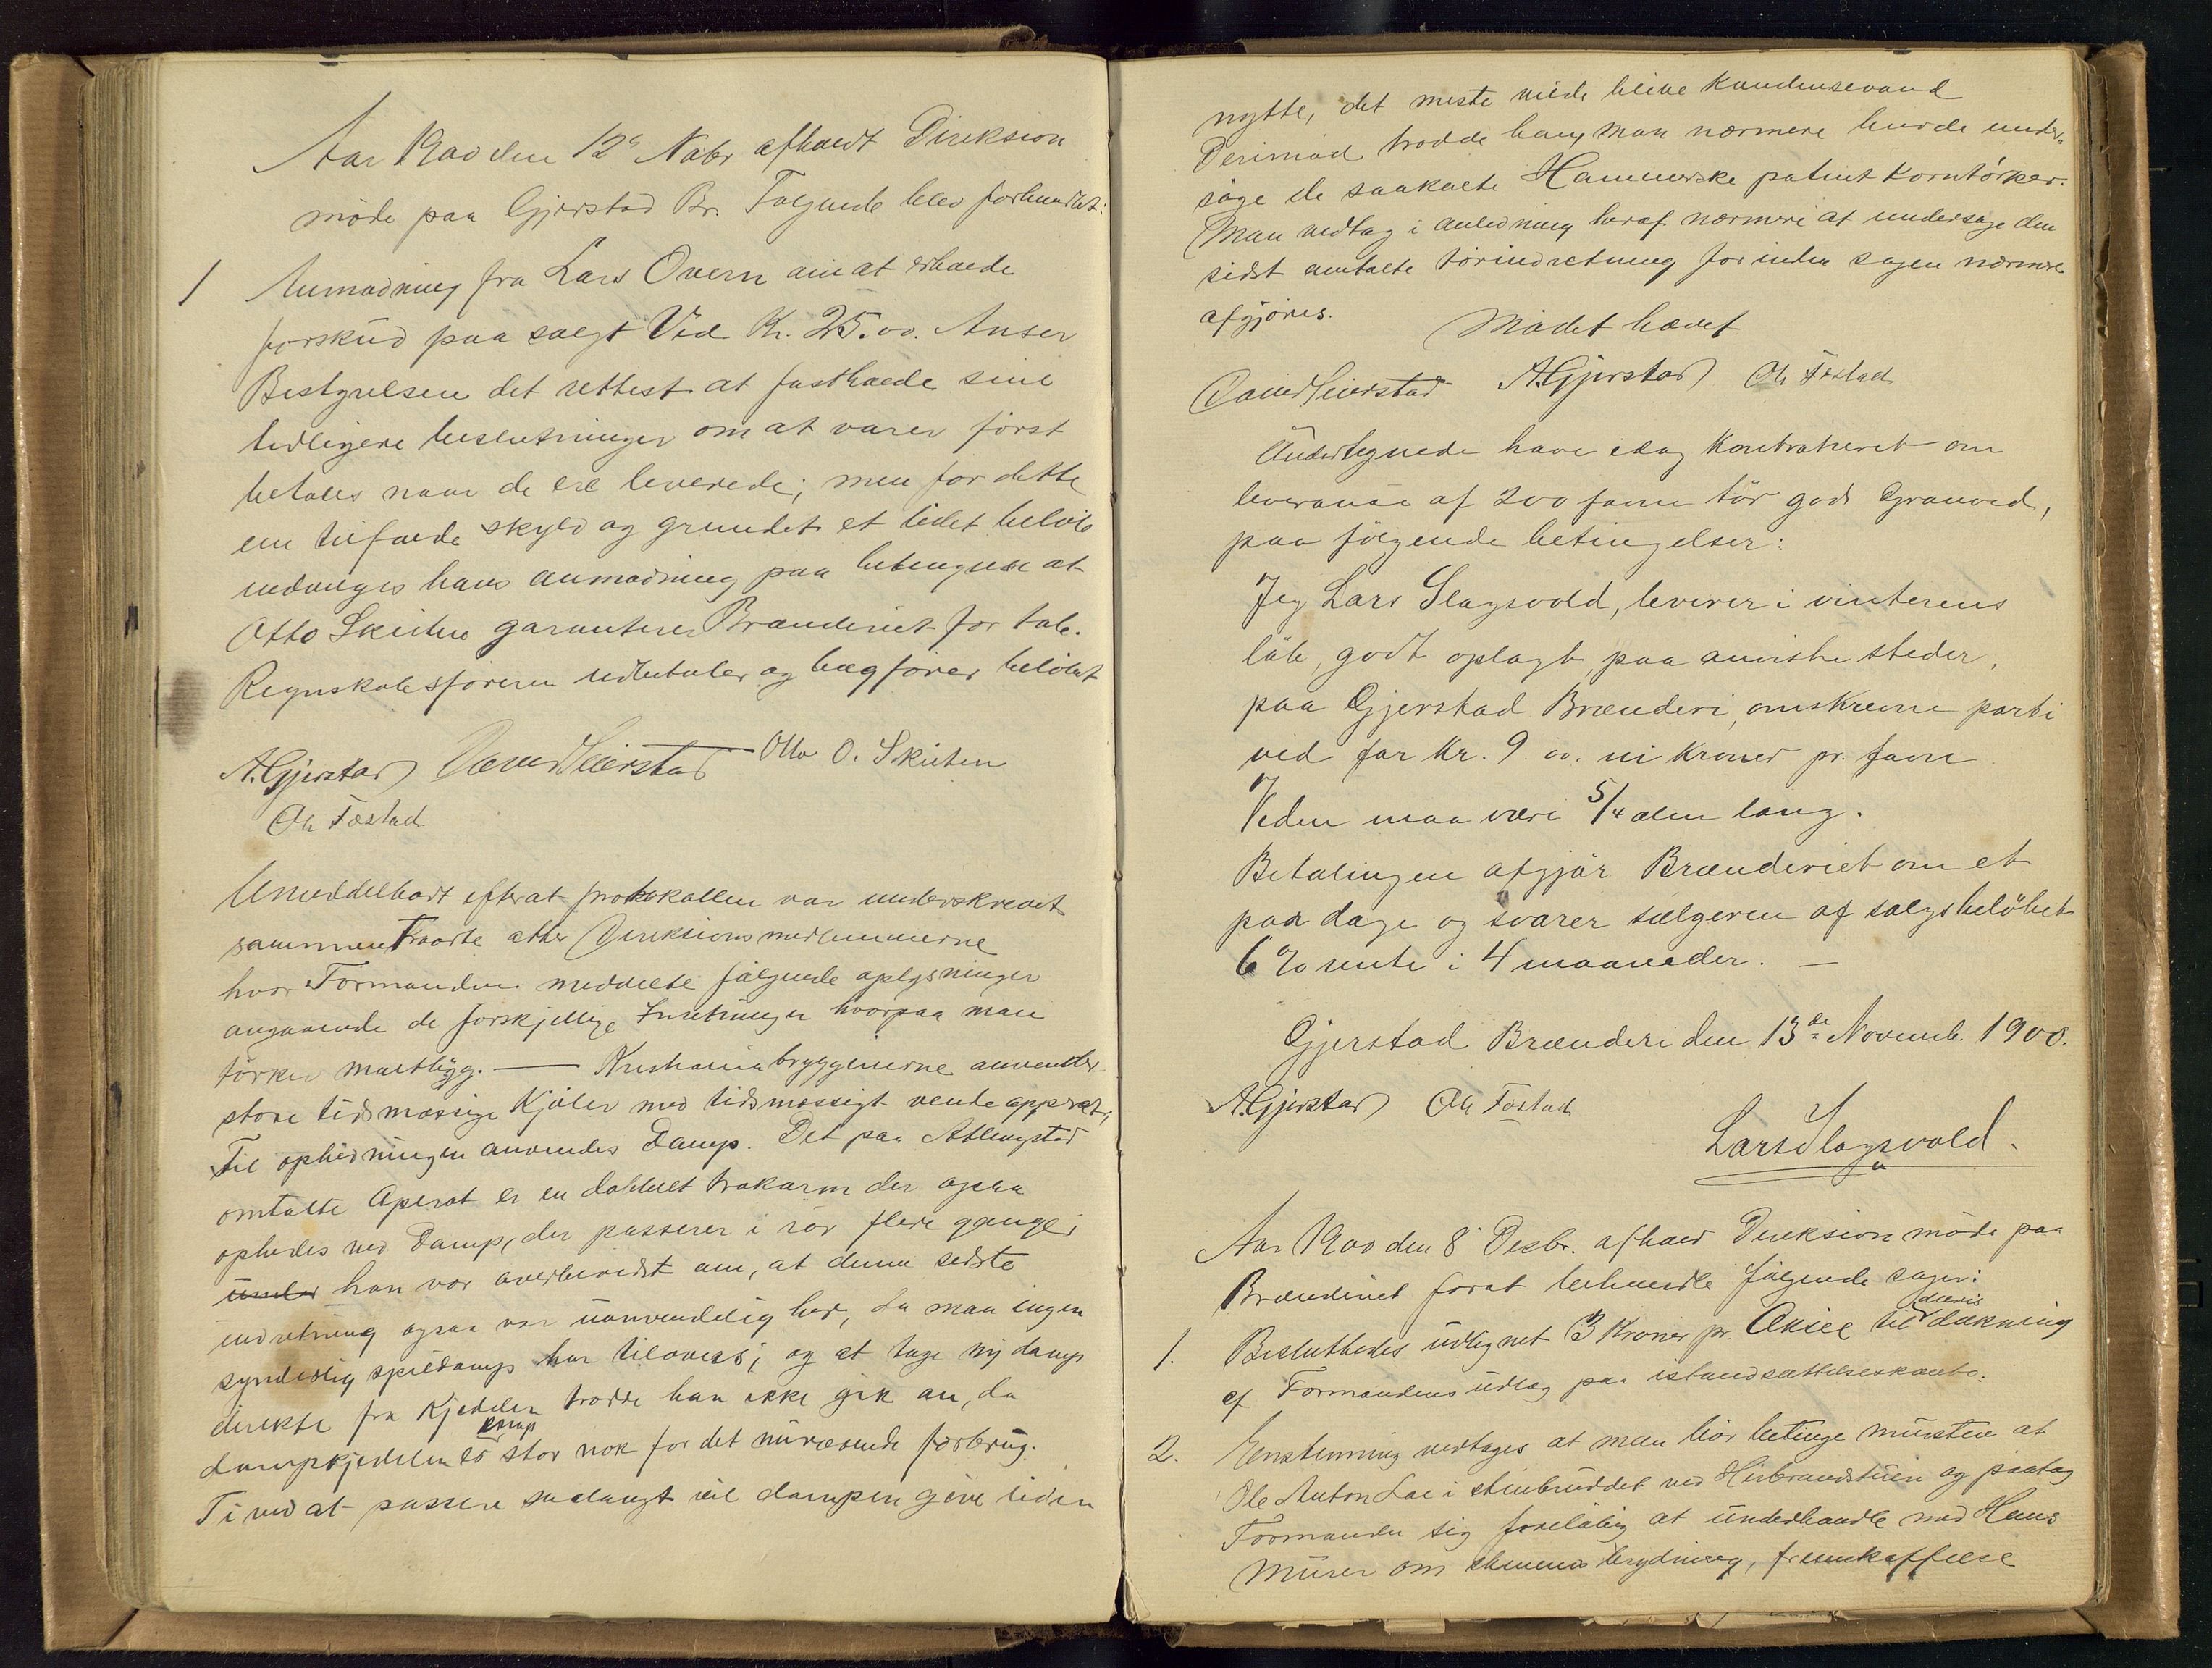 Aar 1900 den 12e Nobr afholdt Direksion
møde paa Gjerstad Br. Følgende blev forhandlet:
1 Anmodning fra Lars Overn om at erholde
forskud paa solgt Ved Kr. 25.00. Anser
Bestyrelsen det rettest at fastholde sine
tidligere beslutninger om at varer først
betales naar de ere leverede; men for dette
ene tilfælde skyld og grundet et lidet beløb
indvilges hans anmodning paa betingelse at
Otto Skiølen garanterer Brænderiet for tab.
Regnskabsføreren udbetaler og bogfører beløbet
A. Gjerstad Otto O. Skiølen
Ole Fostad
Umiddelbart efterat protokollen var underskrevet
sammentraadte atter Direksionsmedlemmerne
hvor Formanden meddelte følgende oplysninger
angaaende de forskjellige Inretninger hvorpaa man
tørker maltbygg. — Kristianiabryggerierne anvender
store tidsmæssige Kjøler med tidsmæssigt vendeapprat,
Til ophedningen anvendes Damp. Det paa Atlungstad
omtalte Aperat er en dobbelt trakarm der ogsaa
ophedes ved Damp, der passerer i rør flere gange i
under han var overbevidst om, at denne sidste
indretning ogsaa var uanvendelig her, da man ingen
synderlig spildamp har tilovers; og at tage ny damp
direkte fra Kjedelen trodde han ikke gik an, da
dampkjedelen er knap stor nok for det nuværende forbrug.
Ti ved at passere saalangt vil dampen give liden
nytte, det meste vilde blive Kondensevand
Derimod trodde han, man nærmere burde under-
søge de saakalte Hammerske patent Korntørker.
Man vedtog i anledning heraf nærmere at undersøge den
sidst omtalte tørindretning forinden sagen nærmere
afgjøres.
Mødet hævet
A. Gjerstad Ole Fostad
Undertegnede have idag Kontraheret om
leveranse af 200 favne tør god Granved,
paa følgende betingelser:
Jeg Lars Slagsvold, leverer i vinterens
løb, godt oplagt, paa anviste steder,
paa Gjerstad Brænderi, omskrevne parti
ved for Kr. 9.00. ni Kroner pr. favn
Veden maa være 5/4 alen lang.
Betalingen afgjør Brænderiet om et
par dage og svarer sælgeren af salgsbeløbet
6 % rente i 4 maaneder. —
Gjerstad Brænderi den 13de Novemb. 1900.
A. Gjerstad Ole Fostad
Lars Slagsvold.
Aar 1900 den 8 Desbr. afholdt Direksion møde paa
Brænderiet forat behandle følgende sager:
1. Besluttedes udlignet 3 Kroner pr. Aksie til delvis dækning
af Formandens udlag paa istandsættelseskonto.
2. Enstemmig vedtages at man bør betinge mursten at
Ole Anton Lae i stenbruddet ved Hilbrandstuen og paatog
Formanden sig foreløbig at underhandle med Hans
Murer om stenens brydning, fremskaffelse